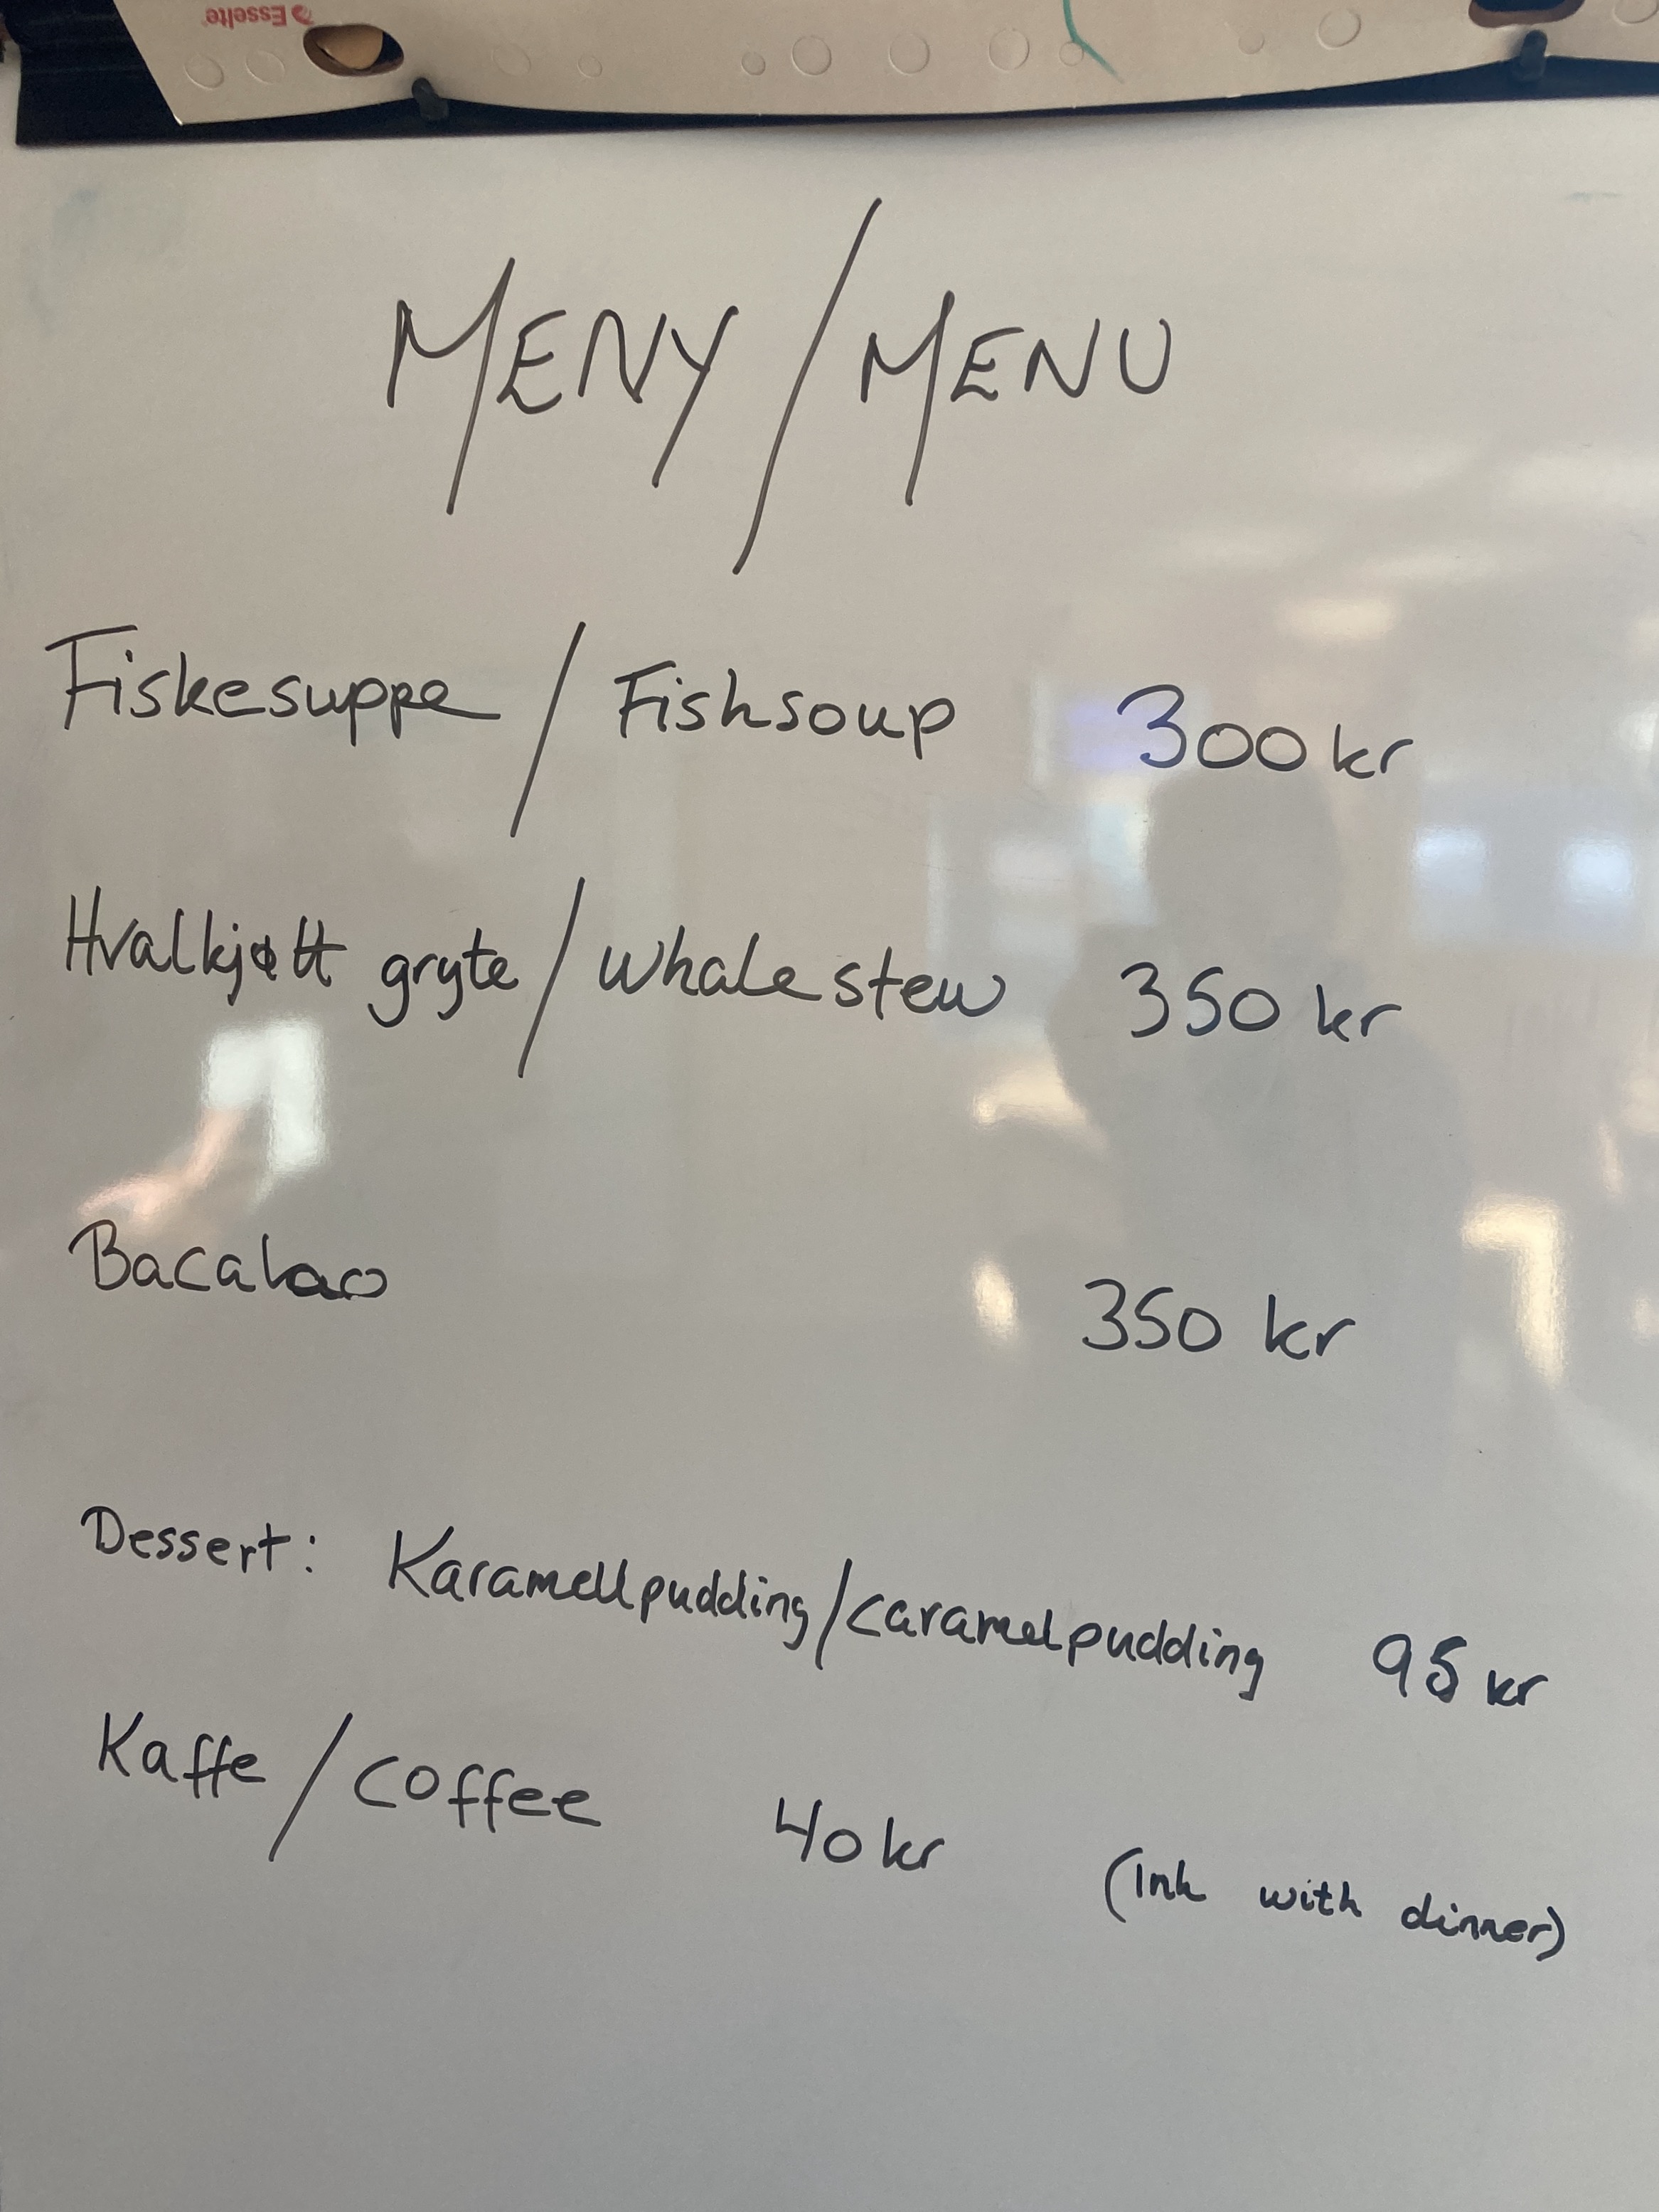 Esselte
MENY / MENU
Fiskesuppe / Fishsoup 300 kr
Hvalkjøtt gryte / whale stew 350 kr
Bacalao 350 kr
Dessert: Karamellpudding/caramelpudding 95 kr
Kaffe / coffee 40 kr (Ink with dinner)